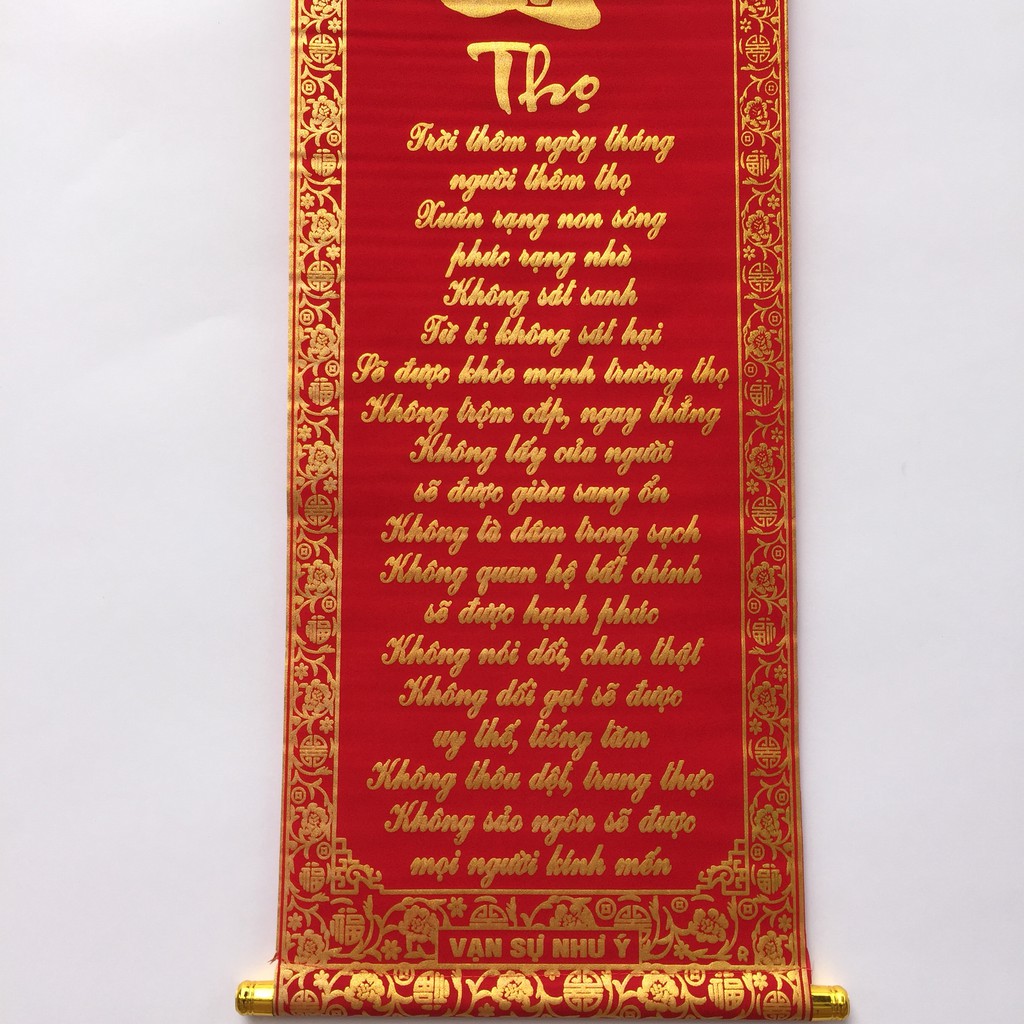 Thọ
Trời thêm ngày tháng
người thêm thọ
Xuân rạng non sông
phúc rạng nhà
Không sát sanh
Từ bi không sát hại
Sẽ được khỏe mạnh trường thọ
Không trộm cắp, ngay thẳng
Không lấy của người
sẽ được giàu sang ổn
Không tà dâm trong sạch
Không quan hệ bất chính
sẽ được hạnh phúc
Không nói dối, chân thật
Không dối gạt sẽ được
uy thế, tiếng tăm
Không thêu dệt, trung thực
Không sảo ngôn sẽ được
mọi người kính mến
VẠN SỰ NHƯ Ý